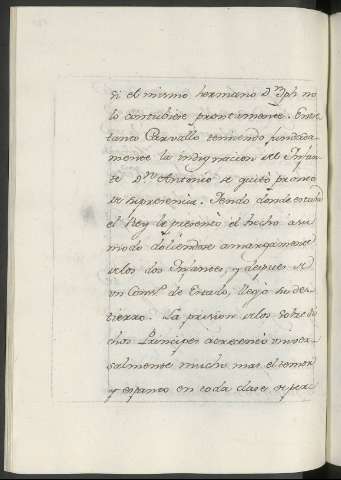 si el mismo hermano Dn Jph no
lo contubiese prontamente. Entre
tanto Carvallo temiendo fundada-
mente la indignacion del Infan-
te Dn. Antonio se quitó pronto
de su presencia. Yendo donde estaba
el Rey le presentó el hecho a su
modo doliendose amargamente
de los dos Infantes, y despues de
un Consº de Estado, llegó su des-
tierro. La prision de los sobredi
chos Principes acrecentó univer
salmente mucho mas el temor
y espanto en toda clase de per